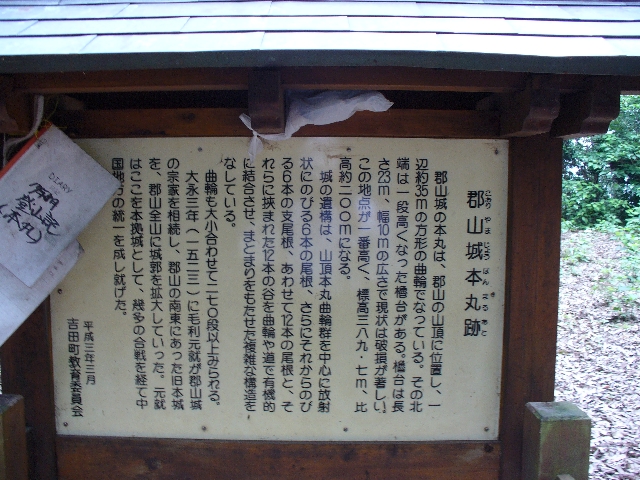 郡山城本丸跡
こおりやまじょうほんまるあと
郡山城の本丸は、郡山の山頂に位置し、一
辺約35mの方形の曲輪でなっている。その北
端は一段高くなった櫓台がある。櫓台は長
さ23m、幅10mの広さで現状は破損が著しい。
この地点が一番高く、標高三八九・七m、比
高約二〇〇mになる。
城の遺構は、山頂本丸曲輪群を中心に放射
状にのびる6本の尾根、さらにそれからのび
る6本の支尾根、あわせて12本の尾根と、そ
れらに挟まれた12本の谷を曲輪や道で有機的
に結合させ、まとまりをもたせた複雑な構造を
なしている。
曲輪も大小合わせて二七〇段以上みられる。
大永三年(一五二三)に毛利元就が郡山城
の宗家を相続し、郡山の南東にあった旧本城
を、郡山全山に城郭を拡大していった。元就
はここを本拠城として、幾多の合戦を経て中
国地方の統一を成し遂げた。
平成三年三月
吉田町教育委員会
DIARY
登山記
(本丸)